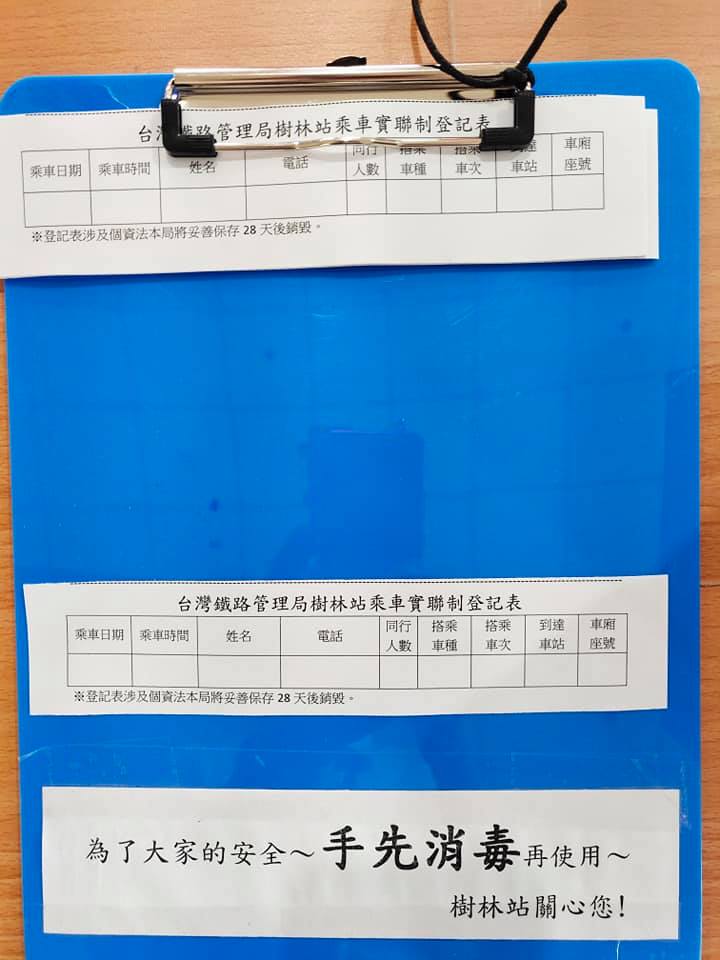 台灣鐵路管理局樹林站乘車實聯制登記表
乘車日期 乘車時間 姓名 電話 同行人數 搭乘車種 搭乘車次 到達車站 車廂座號
※登記表涉及個資法本局將妥善保存 28 天後銷毀。
台灣鐵路管理局樹林站乘車實聯制登記表
乘車日期 乘車時間 姓名 電話 同行人數 搭乘車種 搭乘車次 到達車站 車廂座號
※登記表涉及個資法本局將妥善保存 28 天後銷毀。
為了大家的安全～手先消毒再使用～
樹林站關心您!